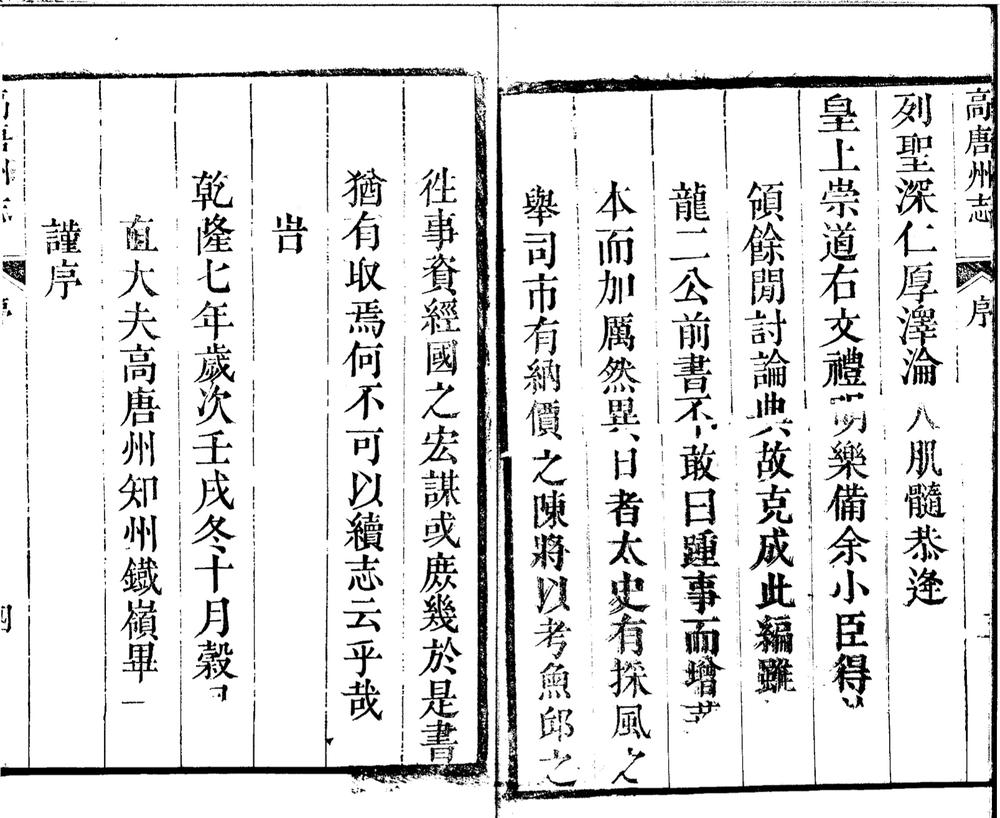 高唐州志 序
列聖深仁厚澤淪 肌髓恭逢
皇上崇道右文禮明樂備余小臣得
領餘閒討論典故克成此編雖
龍二公前書不敢曰踵事而增華
本而加厲然異日者太史有採風之
舉司市有納價之陳將以考魚邱之
徃事資經國之宏謀或庶幾於是書
猶有取焉何不可以續志云乎哉
旹
乾隆七年歲次壬戌冬十月穀
直大夫高唐州知州鐵嶺畢一
謹序
高唐州志 序 四